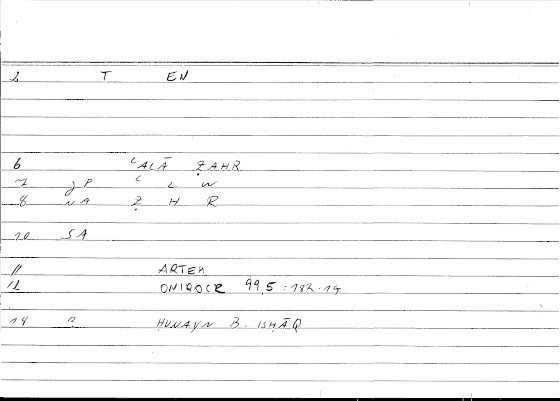 2 T EN
6 ʿALĀ ẒAHR
7 JP ʿ L W
8 NA Ẓ H R
10 SA
11 ARTEM
12 ONIROCR 99,5 : 182.14
14 ḤUNAYN B. ISḤĀQ